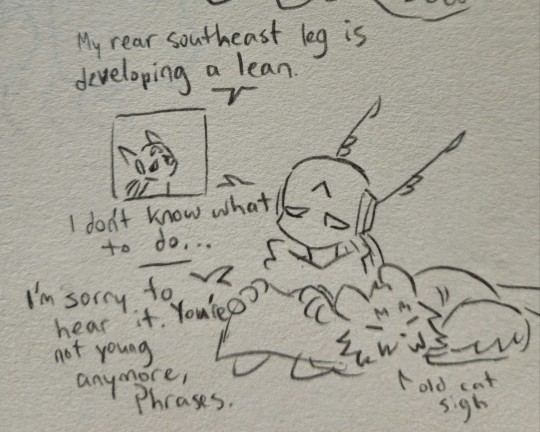 My rear southeast leg is
developing a lean.
I don't know what
to do...
I'm sorry to
hear it. You're
not young
anymore,
Phrases.
old cat
sigh